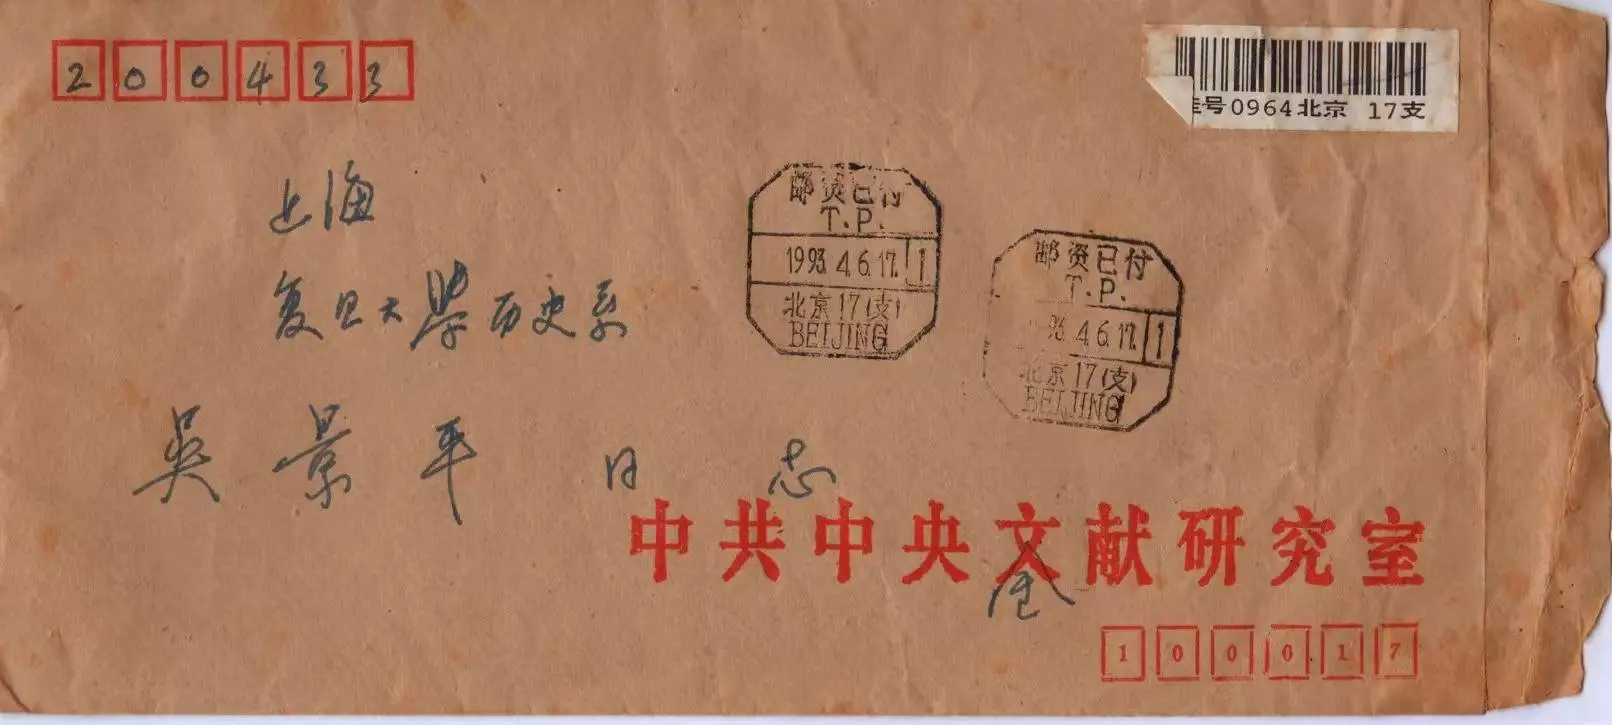 200433
挂号0964北京 17支
上海
复旦大學历史系
吳景平同志
邮资已付
T.P.
1993.4.6.17. 1
北京17(支)
BEIJING
邮资已付
T.P.
93.4.6.17. 1
北京17(支)
BEIJING
中共中央文献研究室
金
100017